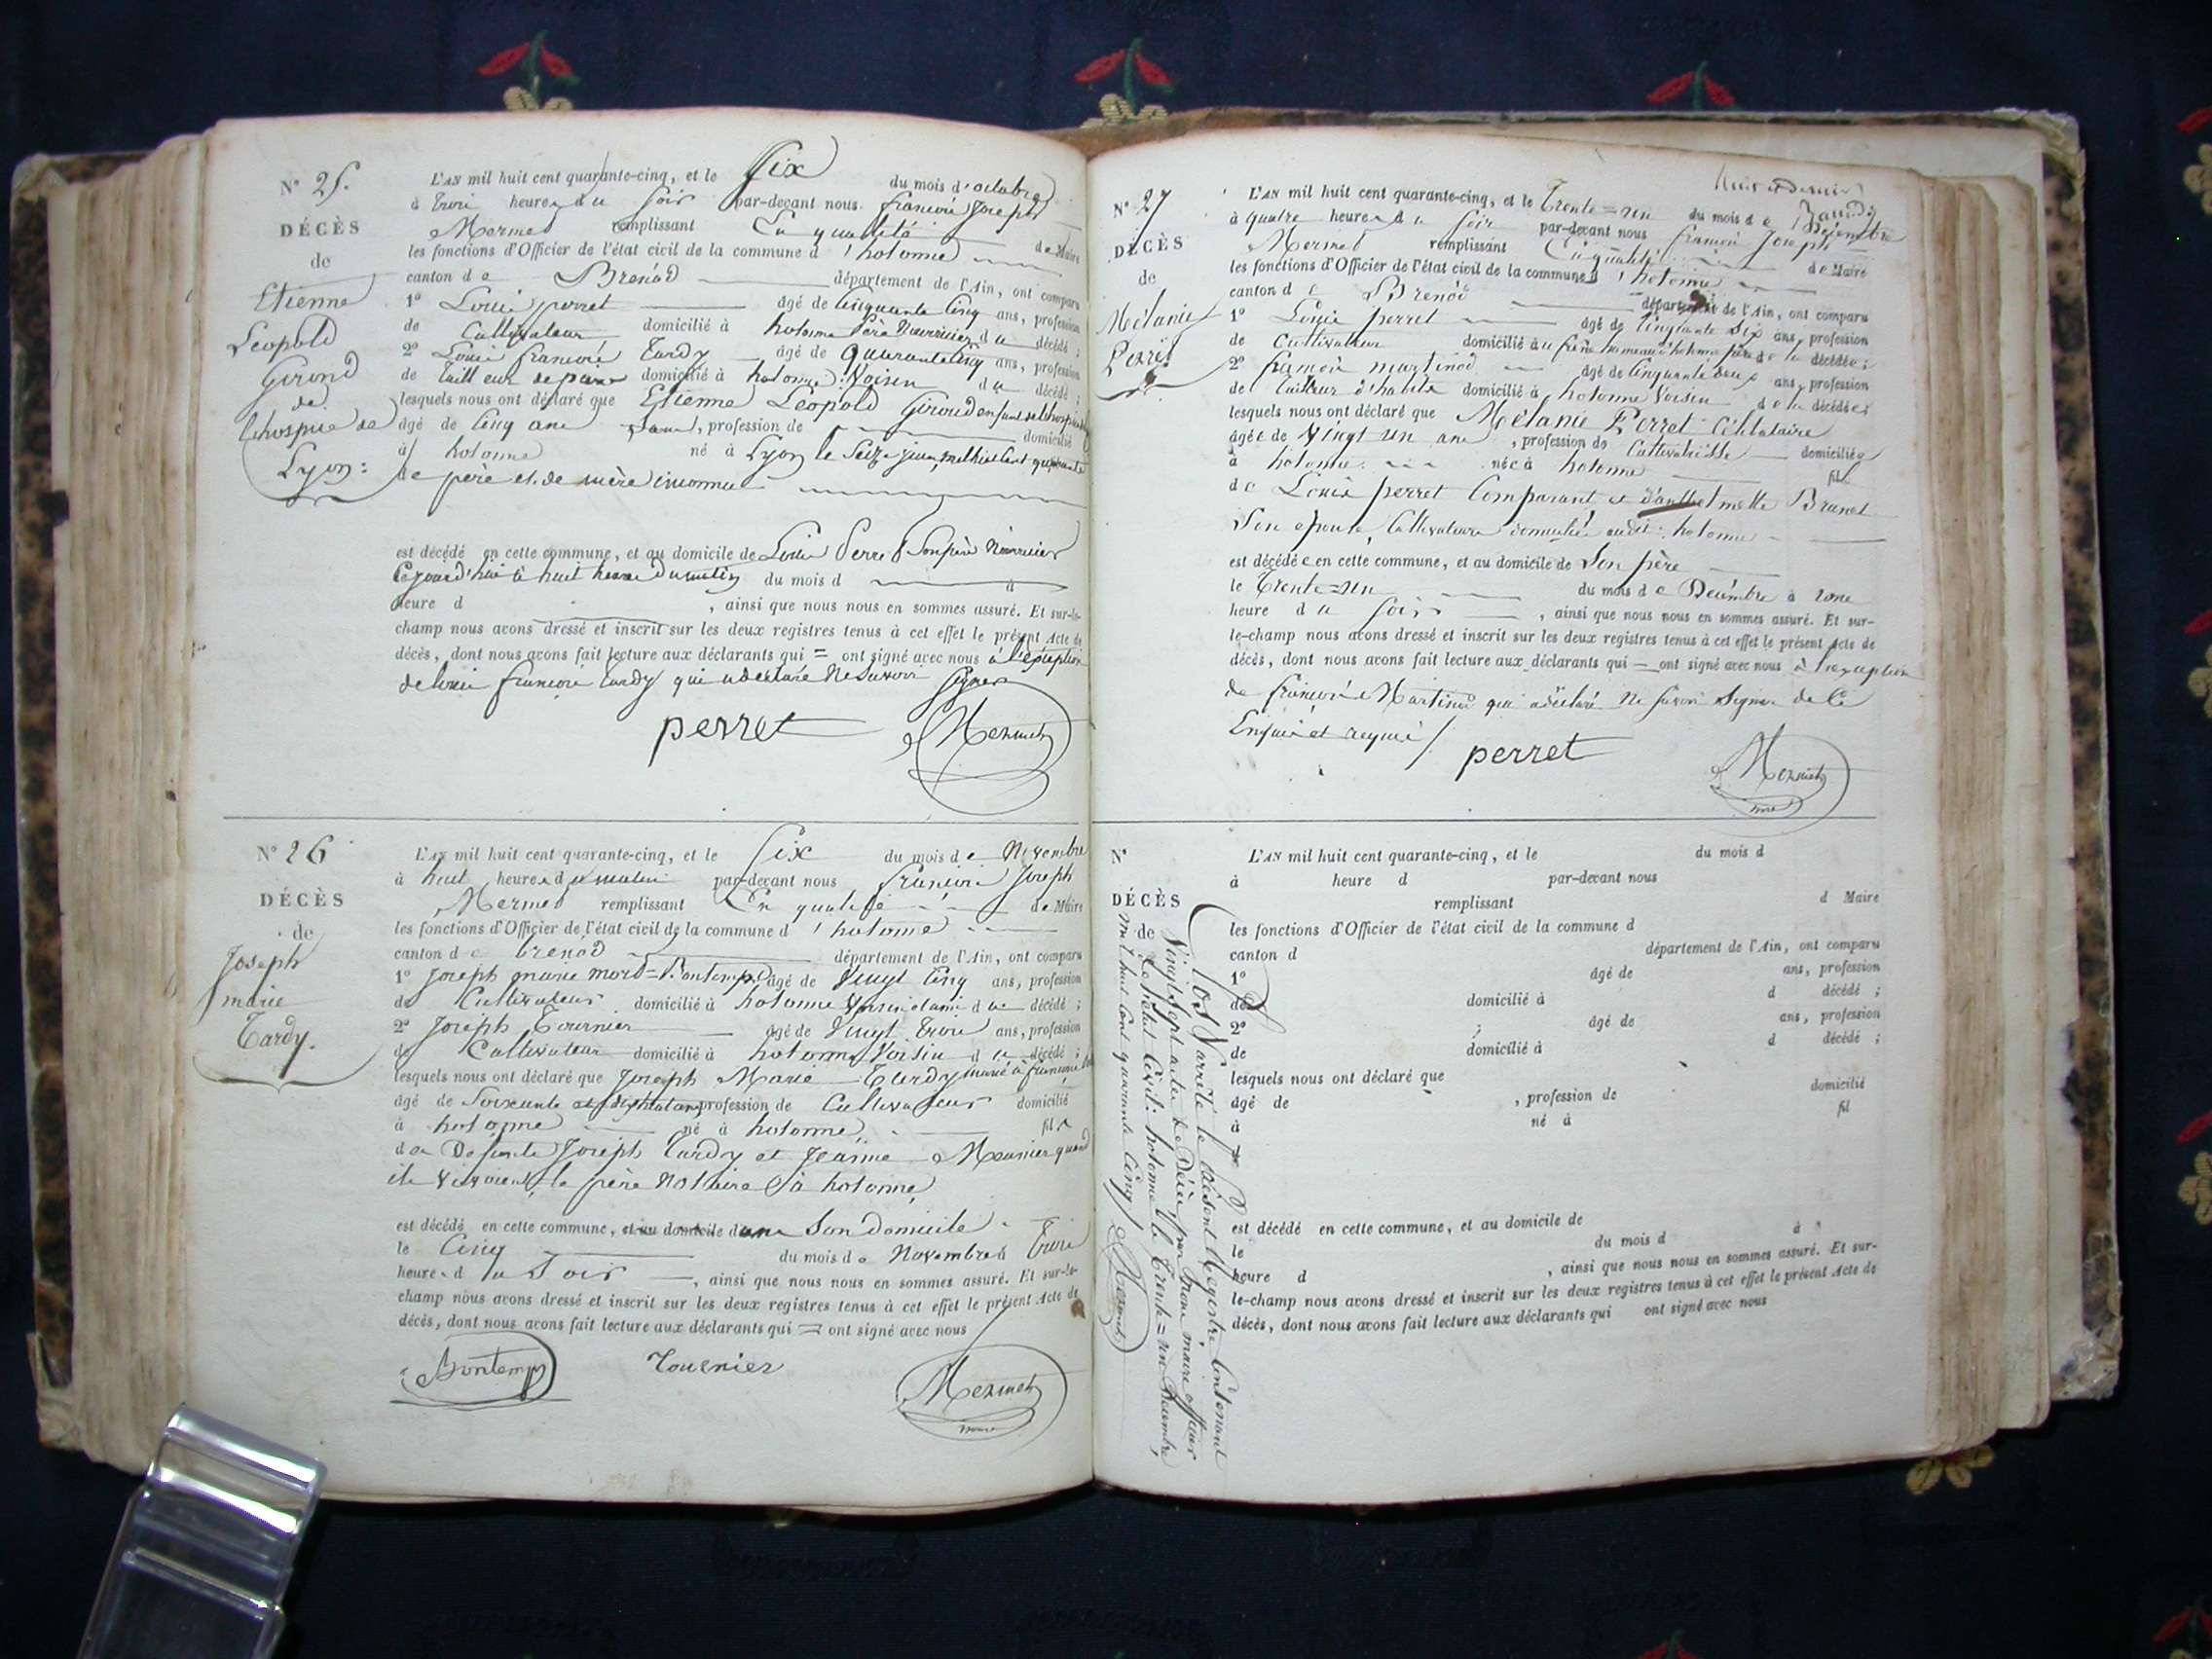 N° 25.
DÉCÈS
de
Etienne
Leopold
Giroud
de
lhospice de
Lyon:
L'AN mil huit cent quarante-cinq, et le Six du mois d'octobre
à trois heures du soir par-devant nous françois Joseph
Mermet remplissant En qualité de Maire
les fonctions d'Officier de l'état civil de la commune d'hotonne
canton de Brenod département de l'Ain, ont comparu
1° Louis perret âgé de Cinquante Cinq ans, profession
de Cultivateur domicilié à hotonne Père Nourricier du décédé ;
2° Louis françois Tardy âgé de Quarante Cinq ans, profession
de Tailleur de pierre domicilié à hotonne Voisin du décédé ;
lesquels nous ont déclaré que Etienne Leopold Giroud enfant de lhospice de
âgé de Cinq ans , profession de domicilié
à hotonne né à Lyon le Seize juin mil huit Cent quarante
de père et de mère inconnu
est décédé en cette commune, et au domicile de Louis Perret Son père Nourricier
Cejourd'hui à huit heures du matin du mois d à
heure d , ainsi que nous nous en sommes assuré. Et sur-le-
champ nous avons dressé et inscrit sur les deux registres tenus à cet effet le présent Acte de
décès, dont nous avons fait lecture aux déclarants qui = ont signé avec nous à l'exception
de louis françois tardy qui a déclaré Ne Savoir Signer
perret Mermet
N° 26
DÉCÈS
de
Joseph
marie
Tardy.
L'AN mil huit cent quarante-cinq, et le Six du mois de Novembre
à huit heures du matin par-devant nous françois Joseph
Mermet remplissant En qualité de Maire
les fonctions d'Officier de l'état civil de la commune d'hotonne
canton de brenod département de l'Ain, ont comparu
1° Joseph marie mord=Bontemps âgé de Vingt Cinq ans, profession
de Cultivateur domicilié à hotonne Voisin et ami du décédé ;
2° Joseph Tournier âgé de Vingt trois ans, profession
de Cultivateur domicilié à hotonne Voisin du décédé ;
lesquels nous ont déclaré que Joseph Marie Tardy marié à françoise
âgé de Soixante ans, profession de Cultivateur domicilié
à hotonne né à hotonne fils
de Defunts Joseph Tardy et Jeanne Meunier quand
ils vivoient, le père Notaire à hotonne
est décédé en cette commune, et au domicile dans Son Domicile
le Cinq du mois de Novembre à trois
heures du Soir , ainsi que nous nous en sommes assuré. Et sur-le-
champ nous avons dressé et inscrit sur les deux registres tenus à cet effet le présent Acte de
décès, dont nous avons fait lecture aux déclarants qui = ont signé avec nous
Bontemps Tournier Mermet
maire
huit et dernier
N° 27
DÉCÈS
de
Mélanie
Perret
L'AN mil huit cent quarante-cinq, et le Trente=un du mois de Décembre
à quatre heures du soir par-devant nous françois Joseph
Mermet remplissant En qualité de Maire
les fonctions d'Officier de l'état civil de la commune d'hotonne
canton de Brenod département de l'Ain, ont comparu
1° Louis perret âgé de Cinquante Six ans, profession
de Cultivateur domicilié hameau d'hotonne père de la décédée ;
2° françois martinod âgé de Cinquante deux ans, profession
de tailleur d'habits domicilié à hotonne Voisin de la décédée ;
lesquels nous ont déclaré que Mélanie Perret Célibataire
âgée de Vingt un ans , profession de Cultivatrice domiciliée
à hotonne née à hotonne fille
de Louis perret Comparant et d'anthelmette Brunet
Son épouse, Cultivateurs domiciliés audit hotonne
est décédée en cette commune, et au domicile de Son père
le Trente=un du mois de Décembre à une
heure du soir , ainsi que nous nous en sommes assuré. Et sur-
le-champ nous avons dressé et inscrit sur les deux registres tenus à cet effet le présent Acte de
décès, dont nous avons fait lecture aux déclarants qui = ont signé avec nous à l'exception
de françois Martinod qui a déclaré ne savoir Signer de Ce
Enquis et requis /
perret Mermet
maire
N°
DÉCÈS
de
L'AN mil huit cent quarante-cinq, et le du mois d
à heure d par-devant nous
remplissant d Maire
les fonctions d'Officier de l'état civil de la commune d
canton d département de l'Ain, ont comparu
1° âgé de ans, profession
de domicilié à d décédé ;
2° âgé de ans, profession
de domicilié à d décédé ;
lesquels nous ont déclaré que
âgé de , profession de domicilié
à né à fil
d
est décédé en cette commune, et au domicile de
le du mois d à
heure d , ainsi que nous nous en sommes assuré. Et sur-
le-champ nous avons dressé et inscrit sur les deux registres tenus à cet effet le présent Acte de
décès, dont nous avons fait lecture aux déclarants qui ont signé avec nous
Clos et arrêté le présent Registre Contenant
Vingt Sept actes de Décès, par Nous, maire officier
de l'état Civil. hotonne le Trente=un Décembre,
mil huit Cent quarante Cinq / Mermet